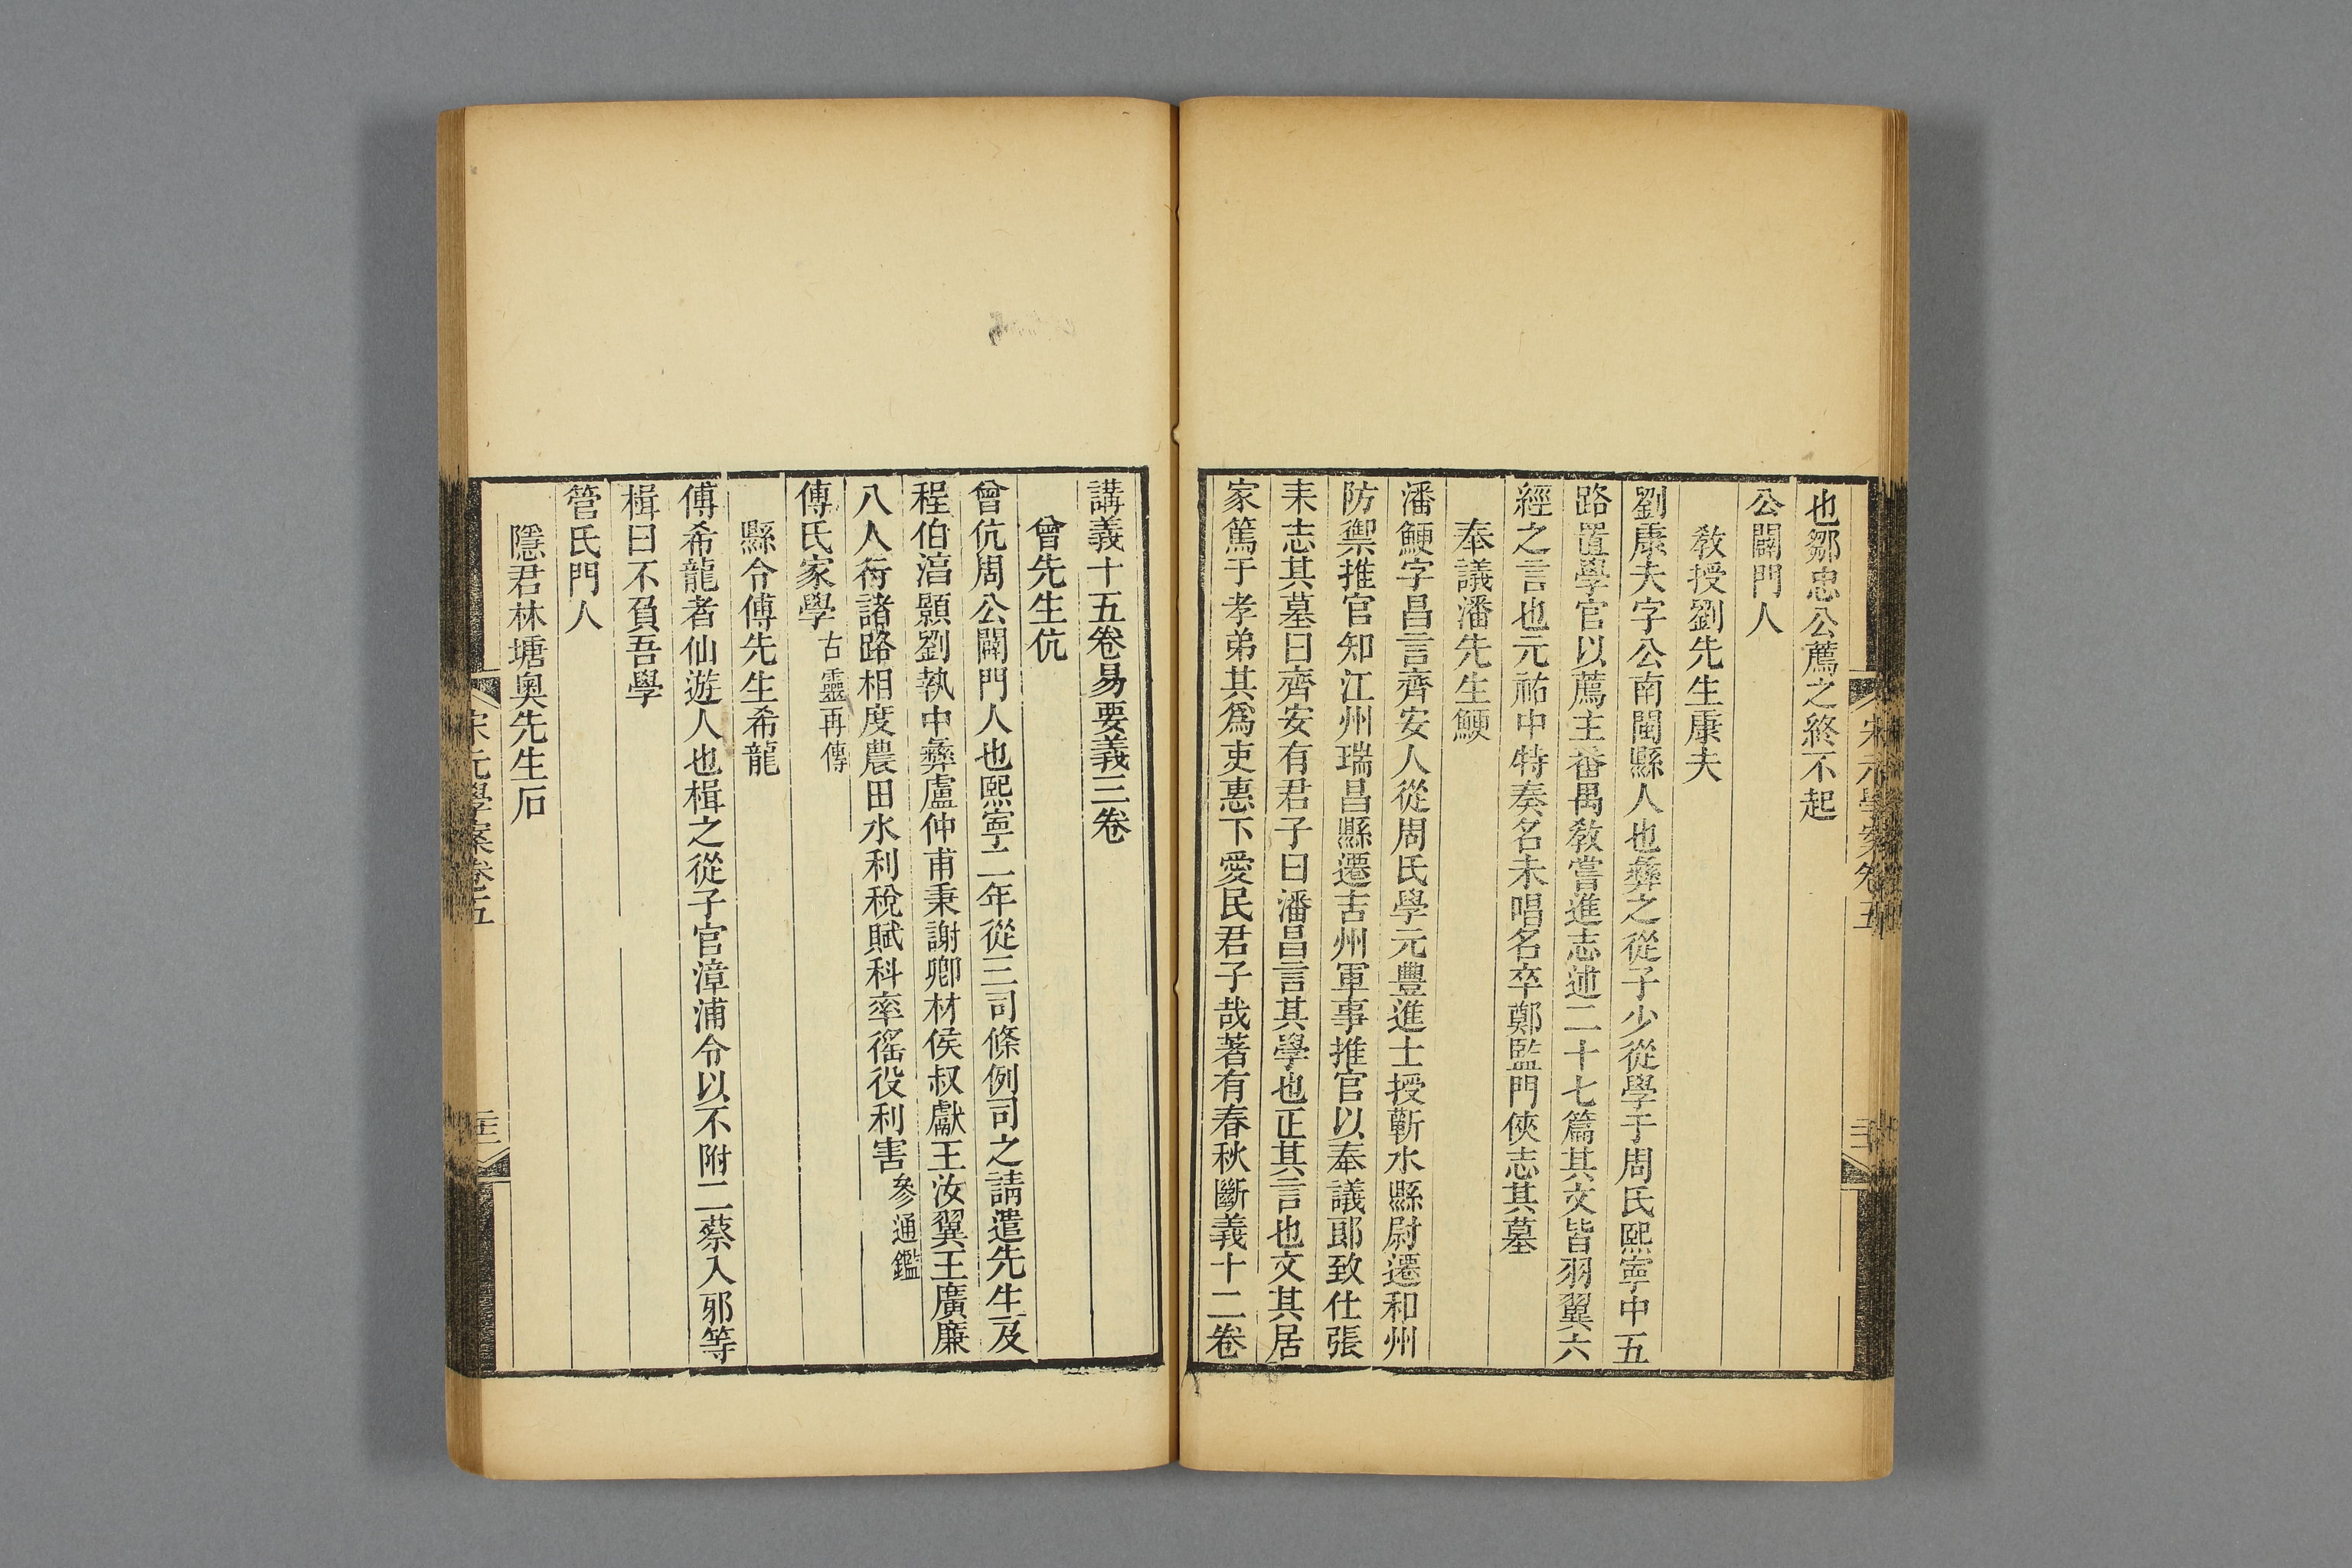 也鄒忠公薦之終不起
公闢門人
教授劉先生康夫
劉康夫字公南閩縣人也彝之從子少從學于周氏熙寧中五
路置學官以薦主番禺敎嘗進志述二十七篇其文皆羽翼六
經之言也元祐中特奏名未唱名卒鄭監門俠志其墓
奉議潘先生鯁
潘鯁字昌言齊安人從周氏學元豐進士授蘄水縣尉遷和州
防禦推官知江州瑞昌縣遷吉州軍事推官以奉議郎致仕張
耒志其墓曰齊安有君子曰潘昌言其學也正其言也文其居
家篤于孝弟其爲吏惠下愛民君子哉著有春秋斷義十二卷
講義十五卷易要義三卷
曾先生伉
曾伉周公闢門人也熙寧二年從三司條例司之請遣先生及
程伯淳顥劉執中彝盧仲甫秉謝卿材侯叔獻王汝翼王廣廉
八人行諸路相度農田水利稅賦科率徭役利害參通鑑
傅氏家學古靈再傳
縣令傅先生希龍
傅希龍者仙遊人也楫之從子官漳浦令以不附二蔡入邪等
楫曰不負吾學
管氏門人
隱君林塘奧先生石
宋元學案卷五